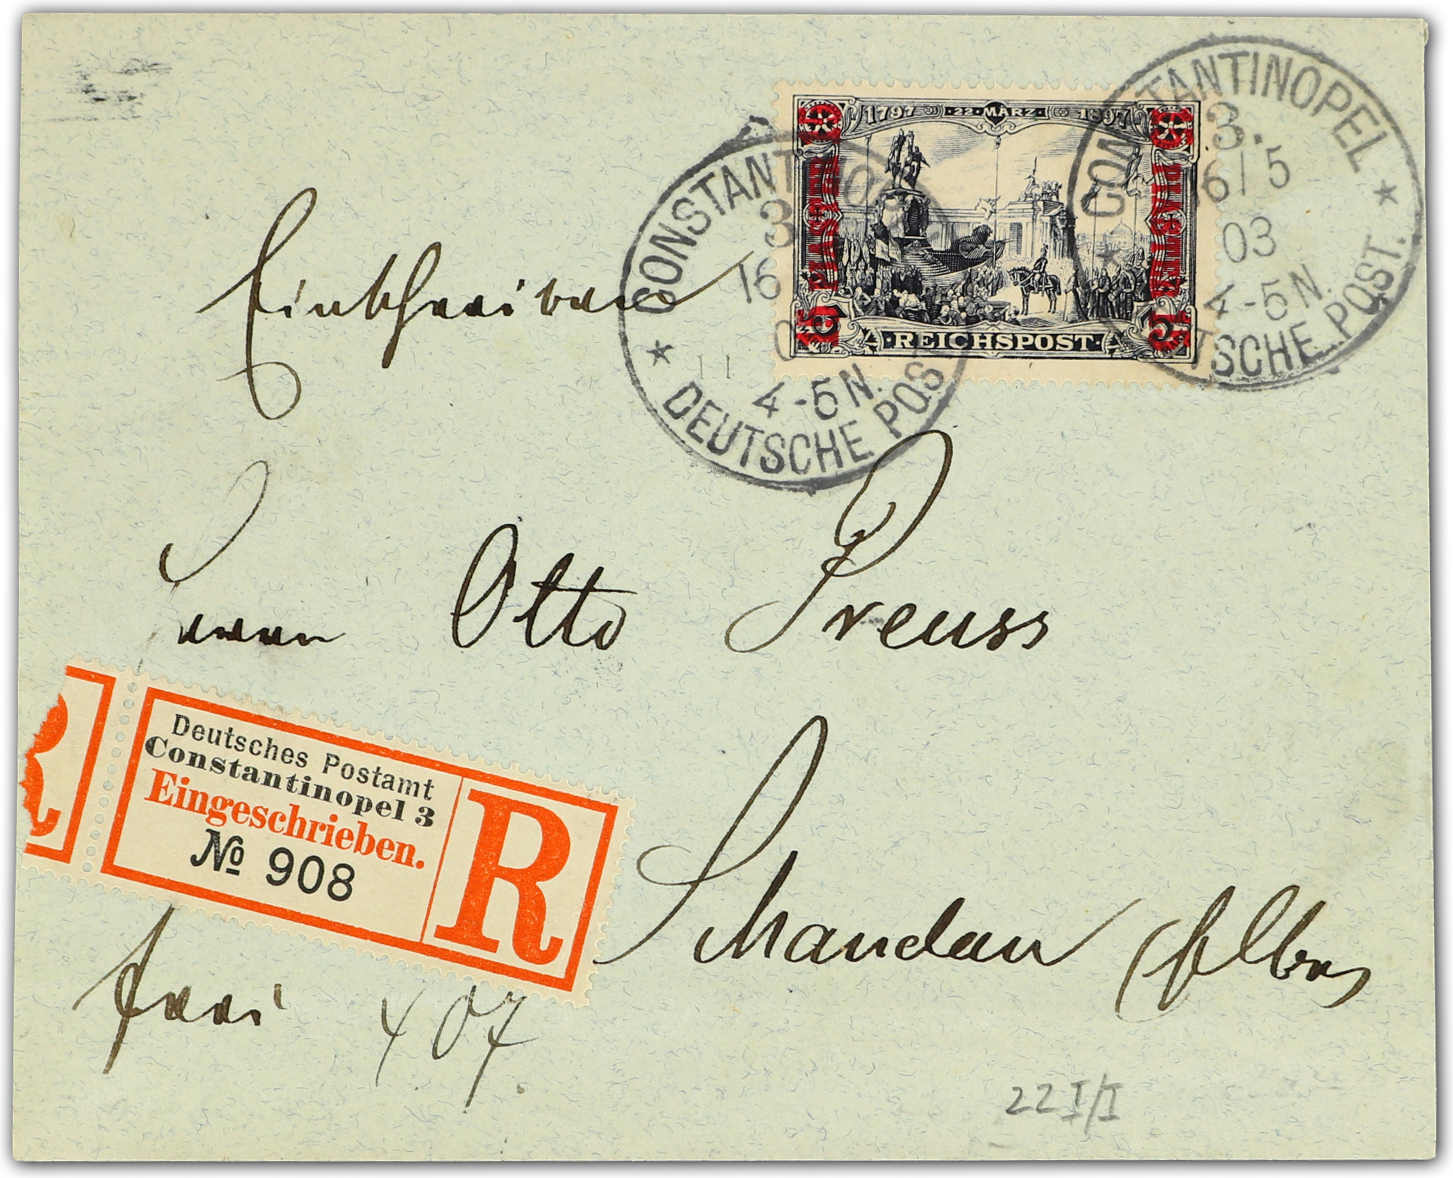 1797 22. MÄRZ 1897
15 PIASTER 15 PIASTER
REICHSPOST
CONSTANTINOPEL
3.
16/5
03
4-5N.
DEUTSCHE POST.
CONSTANTINOPEL
3
16
4-5N.
DEUTSCHE POST
Einschreiben
Herrn Otto Preuss
Deutsches Postamt
Constantinopel 3
Eingeschrieben.
№ 908
R
R
Schandau (Elbe)
frei
407.
22 I/I